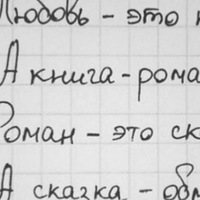 Любовь - это
А книга - рома
Роман - это ск
А сказка - обм